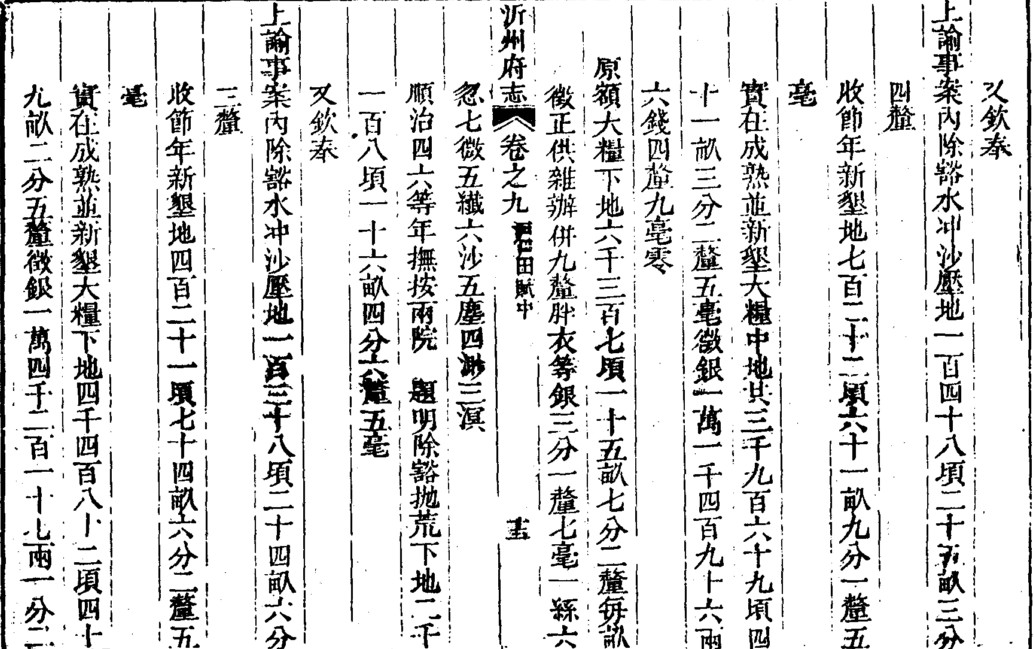 又欽奉
上諭事案內除豁水冲沙壓地一百四十八頃二十五畝三分
四釐
收節年新墾地七百二十二頃六十一畝九分一釐五
毫
實在成熟並新墾大糧中地共三千九百六十九頃四
十一畝三分二釐五毫徵銀一萬一千四百九十六兩
六錢四釐九毫零
原額大糧下地六千三百七頃一十五畝七分二釐每畝
徵正供雜辦併九釐胖衣等銀三分一釐七毫一絲六
沂州府志 卷之九 田賦中 十五
忽七微五纖六沙五塵四渺三溟
順治四六等年撫按兩院 題明除豁抛荒下地二千
一百八頃一十六畝四分六釐五毫
又欽奉
上諭事案內除豁水冲沙壓地一百三十八頃二十四畝六分
三釐
收節年新墾地四百二十一頃七十四畝六分二釐五
毫
實在成熟並新墾大糧下地四千四百八十二頃四十
九畝二分五釐徵銀一萬四千二百一十七兩一分二